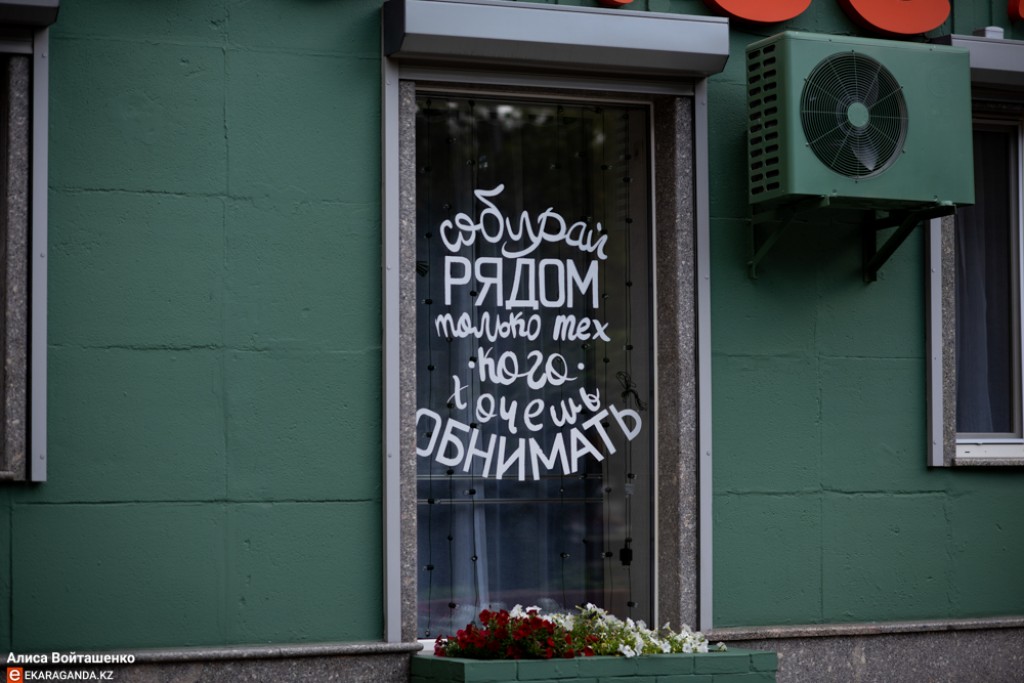 собирай
РЯДОМ
только тех
·кого·
хочешь
ОБНИМАТЬ
Алиса Войташенко
e EKARAGANDA.KZ